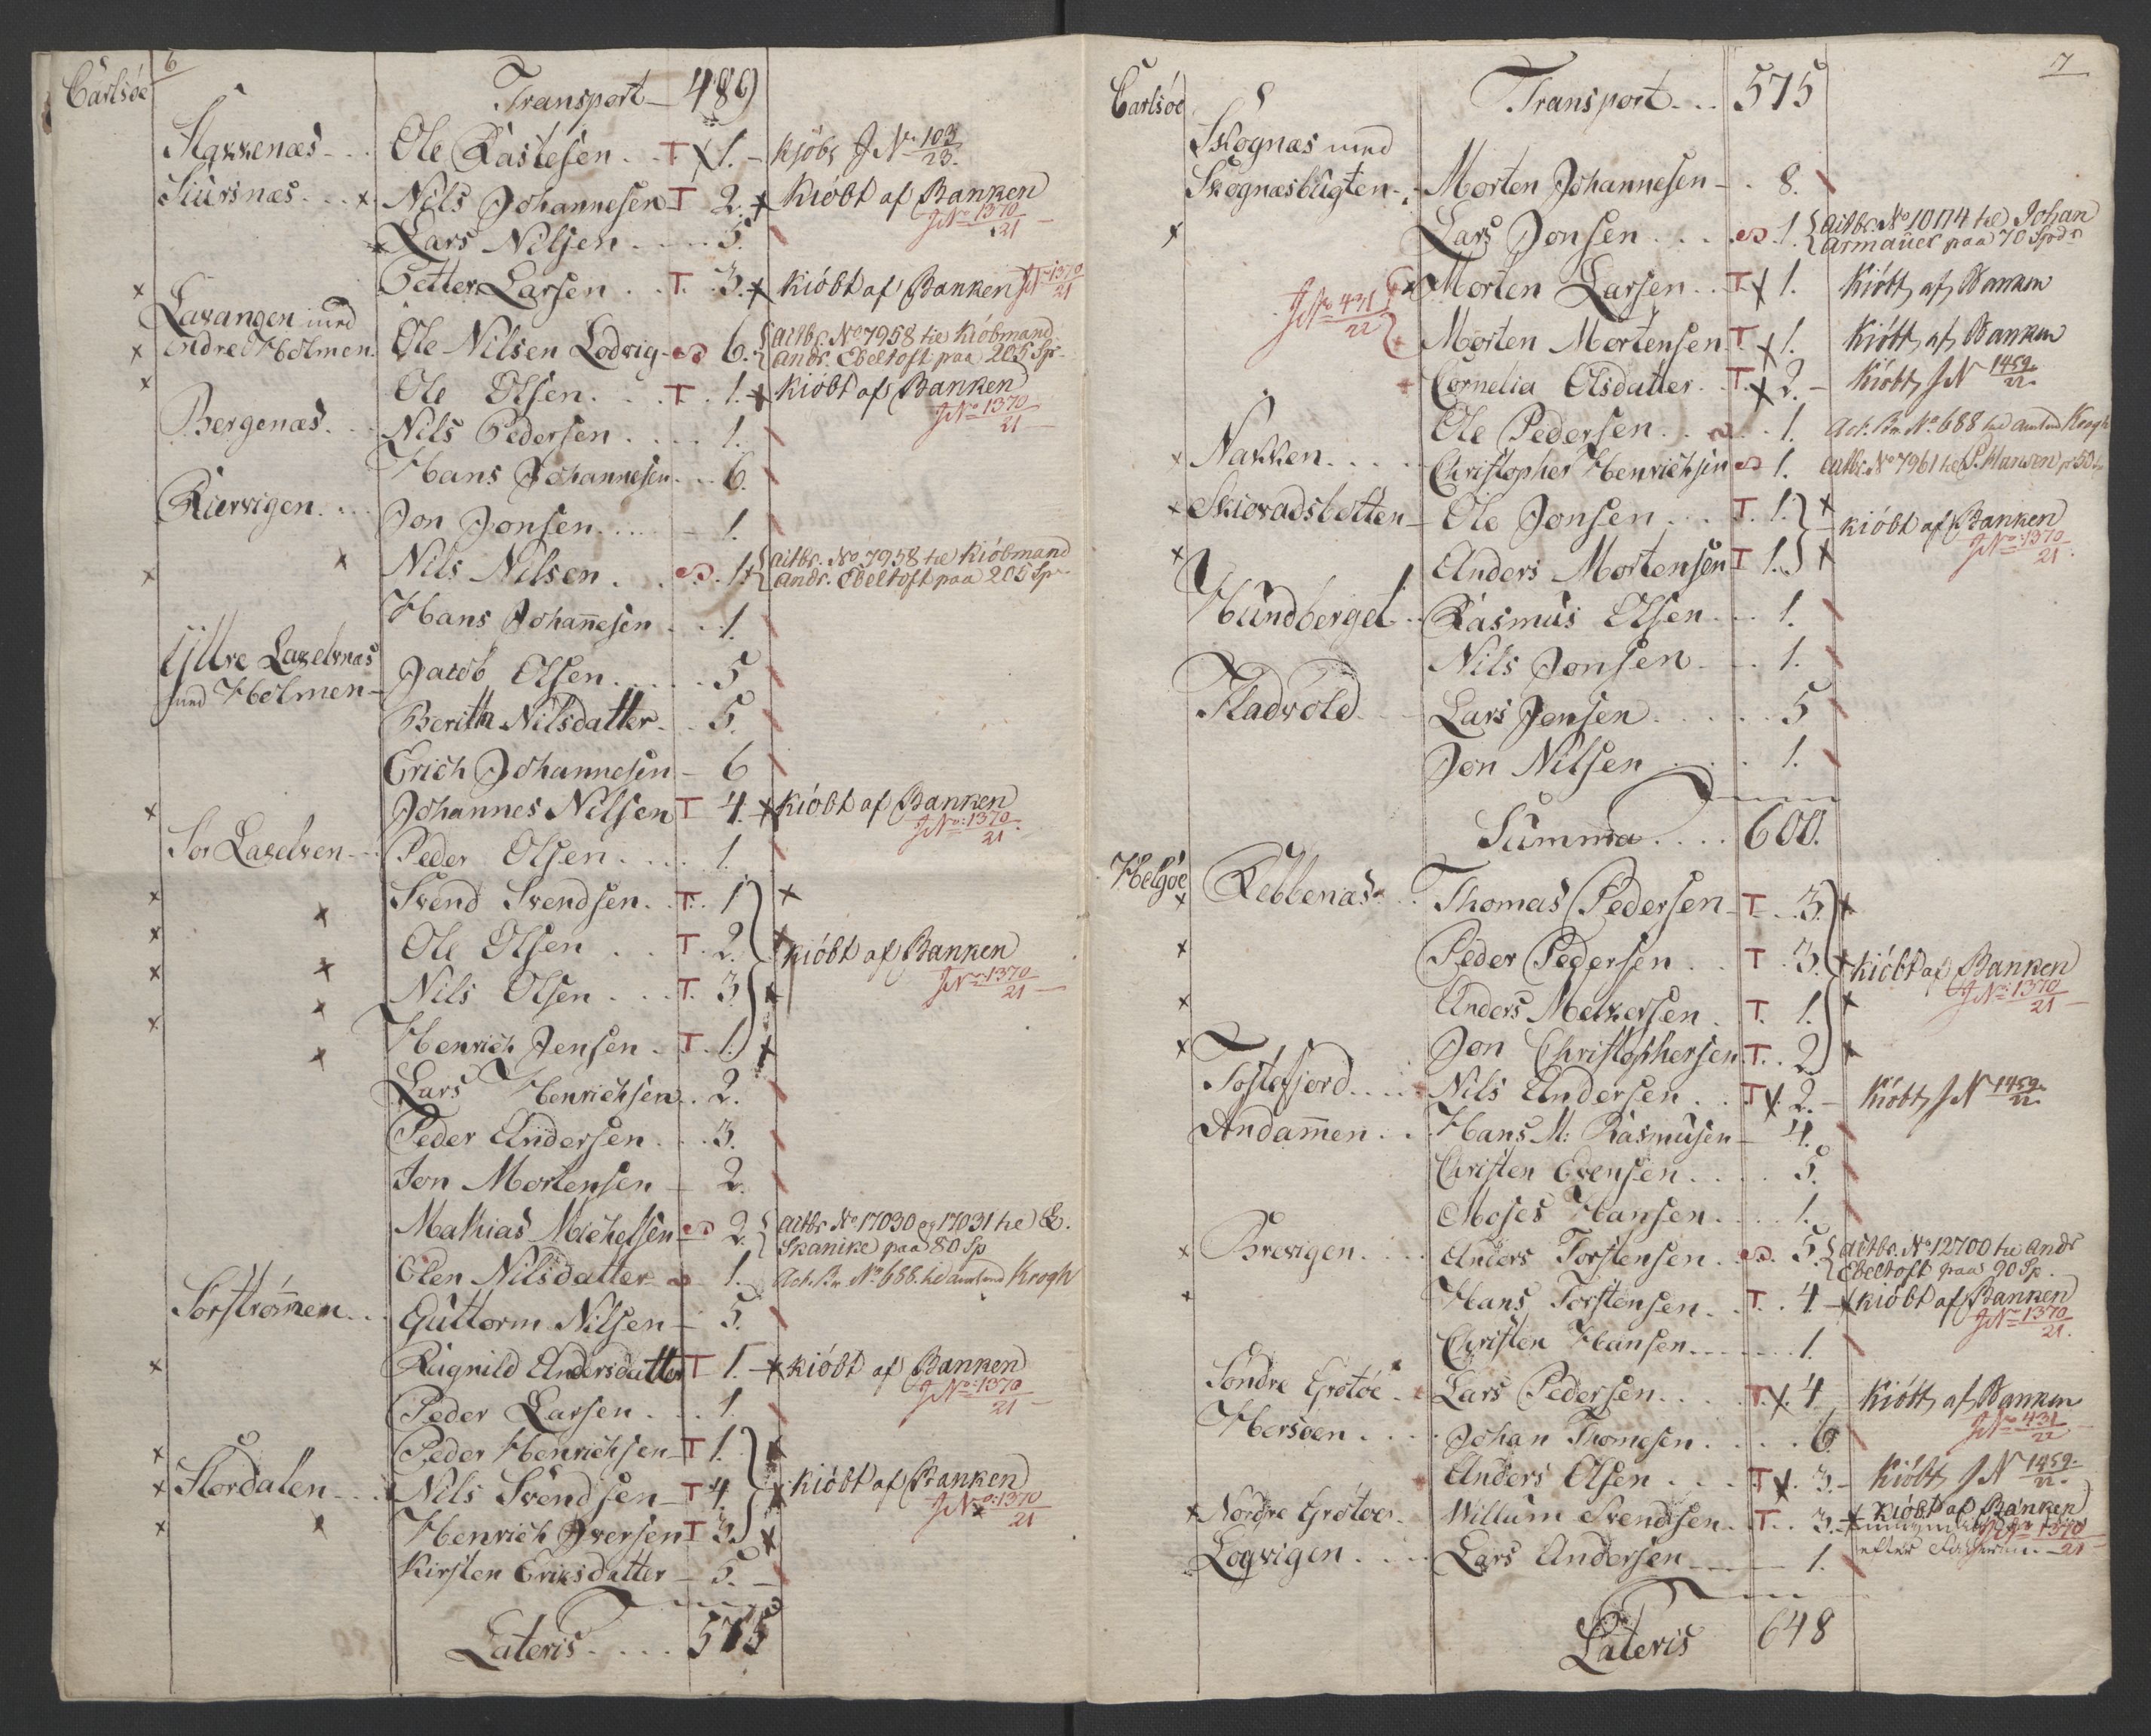 6
Carlsøe
Transport 489
Stakkenæs Ole Rastesen T x 1. Kjøbt J No 103/23.
Siursnæs x Nils Johannesen T 2. x Kiøbt af Banken
J No 1370/21
Lars Nilsen 5.
x Petter Larsen T. 3. x kiøbt af Banken J No 1370/21
Laxangen med
Indre Holmen
x Ole Nilsen Lodvig 6. { actbr. No 7958 til Kiøbmand
Andr. Ebeltoft paa 205 Sp
x Ole Olsen T. 1. x kiøbt af Banken
J No 1370/21
Bergenæs Nils Pedersen 1.
Hans Johannesen 6.
Kiervigen Jon Jonsen 1.
x x Nils Nilsen 1. { actbr. No 7958 til Kiøbmand
Andr. Ebeltoft paa 205 Sp
Hans Johannesen 1.
Ÿttre Laxelvnæs
med Holmen Jacob Olsen 5
Berith Nilsdatter 5.
Erich Johannesen 6
x Johannes Nilsen T 4. x kiøbt af Banken
J No: 1370/21.
Sør Laxelven Peder Olsen 1.
x x Svend Svendsen T. 1 x
x x Ole Olsen T. 2. x kiøbt af Banken
J No: 1370/21
x x Nils Olsen T. 3. x
x x Henrich Jensen T. 1. x
Lars Henrichsen 2.
Peder Andersen 3.
Jon Mortensen 2.
Mathias Michelsen 2. { actbr No 17030 og 17031 til
Skanike paa 80 Sp
Olen Nilsdatter 1. Act. Br. No 688. til Amtmd Krogh
Sørstrømmen Guttorm Nilsen 5.
x Ragnild Andersdatter T 1. x kiøbt af Banken
J No: 1370/21
Peder Larsen 1.
x Peder Henrichsen T 1. x
x Stordalen Nils Svendsen T 4. x kiøbt af Banken
J No: 1370/21
x x Henrich Iversen T 3. x
Kirsten Ericsdatter 5.
Lateris 575
7
Carlsøe
Transport 575
Skognæs med
Skognæsbugten Morten Johannesen 8.
x Lars Jonsen 1. { actbr. No 10174 til Johan
Armauer paa 70 Spdr
J No 431/22 Morten Larsen T x 1. Kiøbt af Banken
Morten Mortensen T. x 1. Kiøbt af Banken
Cornelia Olsdatter T. x 2. Kiøbt J N 1459/22.
Ole Pedersen 1. Act. Br. No 688 til Amtmd Krogh
x Nakken Christopher Henrichsen 1. actbr. No 7961 til P. Hansen p 50 Sp
x Skiovadsbotten Ole Jonsen T. 1. x kiøbt af Banken
J No: 1370/21.
x Anders Mortensen T 1. x
Hundberget Rasmus Olsen 1.
Nils Jonsen 1.
Fladvold Lars Jensen 5
Jon Nilsen 1.
Summa 600.
Helgøe
x Rebbenæs Thomas Pedersen T 3. x
x Peder Pedersen T 3. x kiøbt af Banken
J No: 1370/21
x Anders Melkersen T. 1. x
x Jon Christophersen T. 2. x
Tostefjord Nils Andersen T x 2. Kiøbt J N 1459/22.
Andammen Hans M: Rasmusen 4.
Christen Evensen 5.
Moses Hansen 1.
x Brevigen Anders Torstensen 5. { actbr. No 12700 til Andr
Ebeltoft paa 90 Sp.
x Hans Torstensen T. 4 x kiøbt af Banken
J No 1370/21.
Christen Hansen 1.
Søndre Grøtøe Lars Pedersen T. x. 4 Kiøbt af Banken
J No 431/22
Hersøen Johan Thomesen 6.
Anders Olsen T. x. 3. Kiøbt J N 1459/22.
x Nordre Grøtøe Willum Svendsen T. 3. x Kiøbt af Banken
J No 1370/21
efter
Logvigen Lars Andersen 1.
Lateris 648